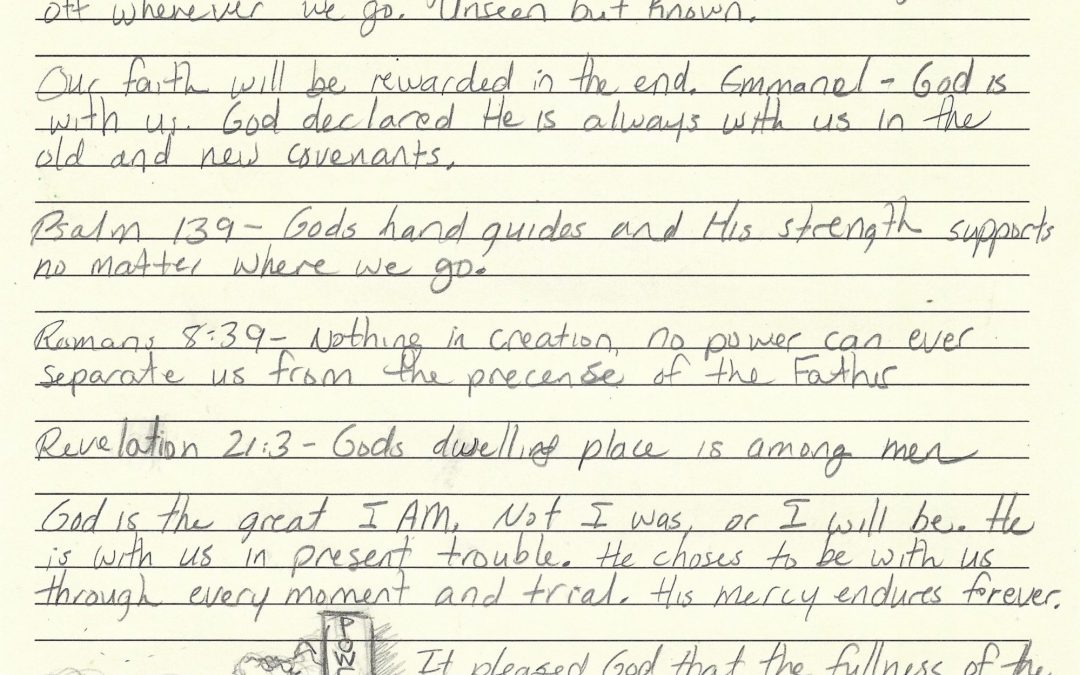 off wherever we go. Unseen but known.
Our faith will be rewarded in the end. Emmanel - God is
with us. God declared He is always with us in the
old and new covenants.
Psalm 139 - Gods hand guides and His strength supports
no matter where we go.
Romans 8:39 - Nothing in creation, no power can ever
separate us from the precense of the Father
Revelation 21:3 - Gods dwelling place is among men
God is the great I AM. Not I was, or I will be. He
is with us in present trouble. He choses to be with us
through every moment and trial. His mercy endures forever.
POW
It pleased God that the fullness of the